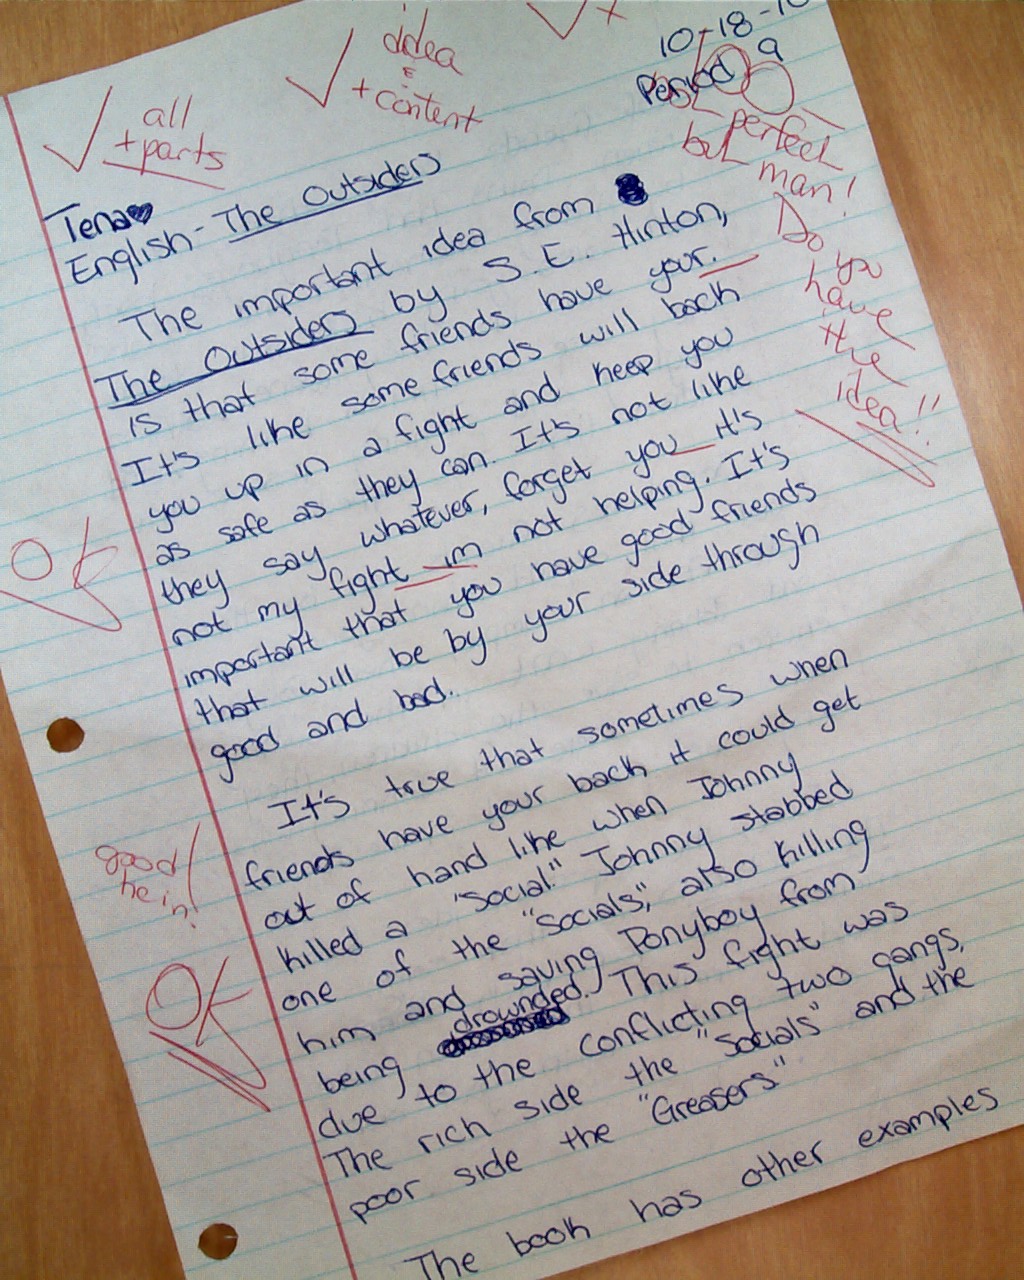 10-18-1
Period 9
all
+parts
idea
+ content
+
perfect
but
man!
Do
you
have
the
idea!!
Tena♥
English - The Outsiders
The important idea from
The Outsiders by S.E. Hinton,
is that some friends have your.
It's like some friends will back
you up in a fight and keep you
as safe as they can. It's not like
they say whatever, forget you it's
not my fight im not helping. It's
important that you have good friends
that will be by your side through
good and bad.
OK
It's true that sometimes when
friends have your back it could get
out of hand like when Johnny
killed a "Social." Johnny stabbed
one of the "Socials", also killing
him and saving Ponyboy from
being drownded. This fight was
due to the conflicting two gangs,
The rich side the "Socials" and the
poor side the "Greasers."
good
OK
The book has other examples